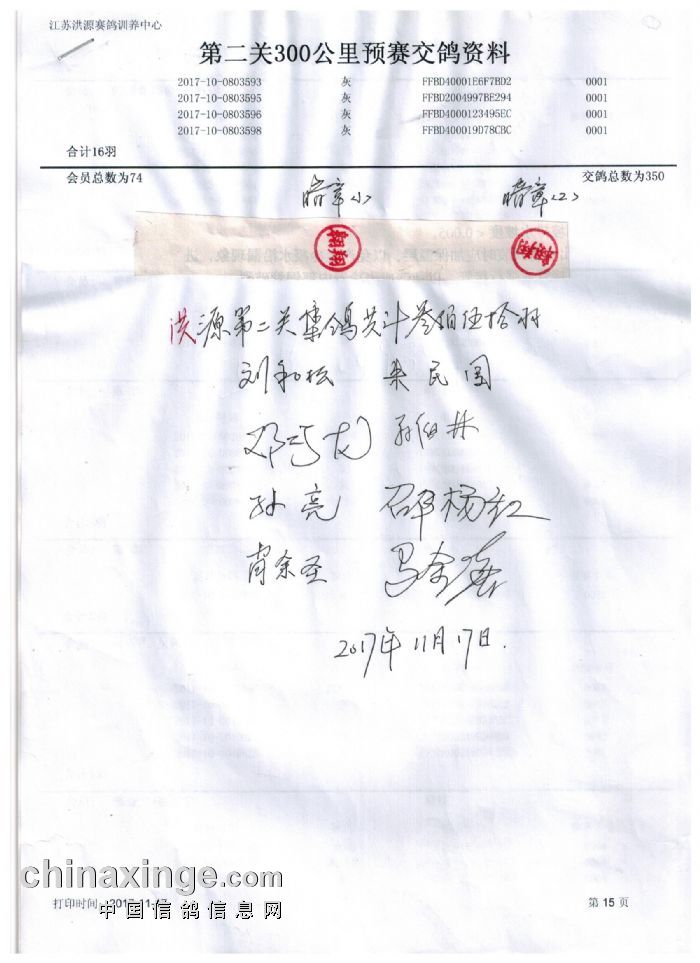 江苏洪源赛鸽训养中心
第二关300公里预赛交鸽资料
2017-10-0803593 灰 FFBD40001E6F7BD2 0001
2017-10-0803595 灰 FFBD2004997BE294 0001
2017-10-0803596 灰 FFBD4000123495EC 0001
2017-10-0803598 灰 FFBD400019D78CBC 0001
合计16羽
会员总数为74 交鸽总数为350
暗章<1> 暗章<2>
翱翔 翱翔
洪源第二关集鸽共计叁佰伍拾羽
刘和松 朱民国
邓 孙伯林
孙亮 邵杨红
肖余圣 马金
2017年11月17日.
chinaxinge.com
打印时间: 2017-11-17 第 15 页
中国信鸽信息网